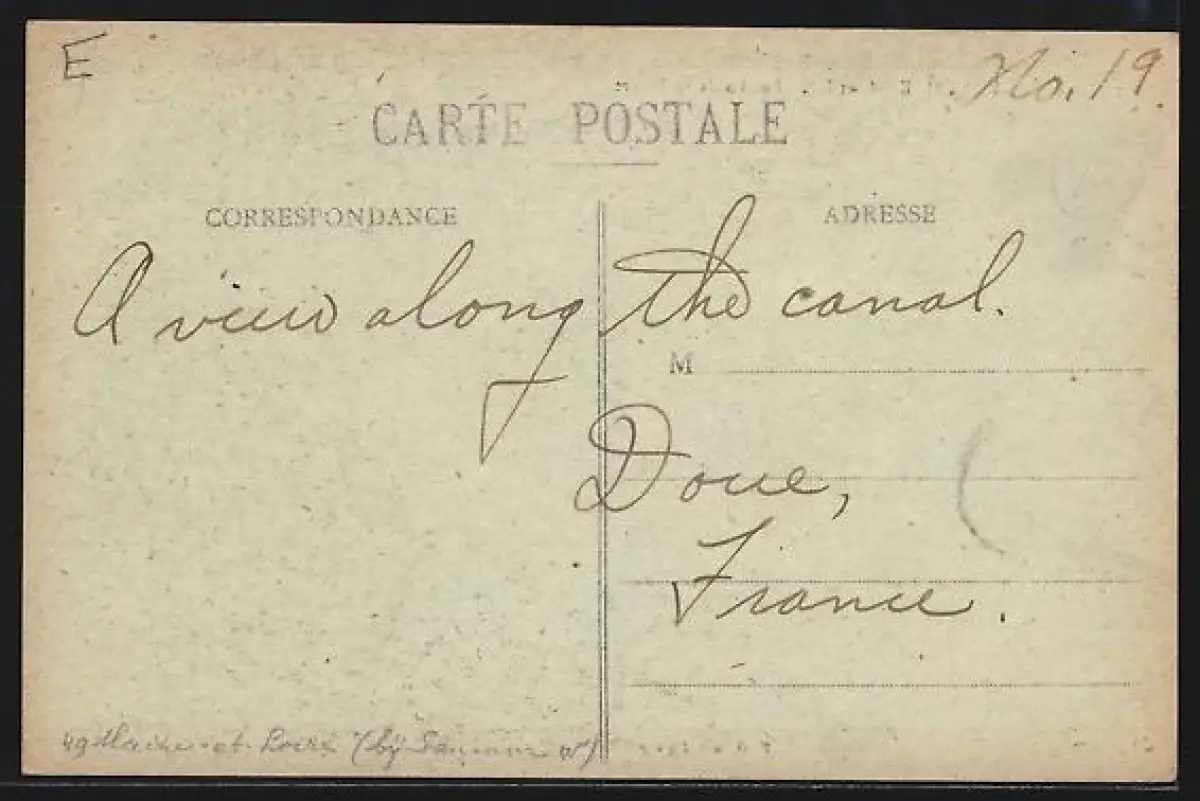 E
No. 19.
CARTE POSTALE
CORRESPONDANCE
ADRESSE
A view along the canal.
M
Doue,
France.
49 Maine-et-Loire (by Saumur